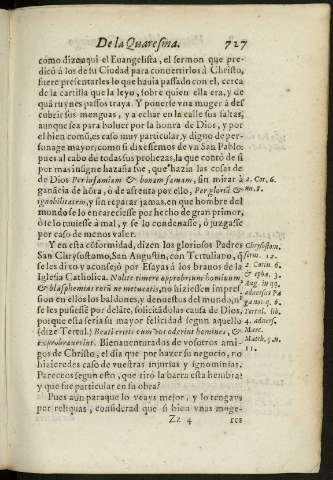 De la Quaresma. 727
como dize aqui el Euangelista, el sermon que pre-
dicó à los de su Ciudad para conuertirlos à Christo,
fuere presentarles lo que hauia passado con el, cerca
de la cartilla que la leyo, sobre quien ella era, y de
quã ruynes passos traya. Y ponerse vna muger à des
cubrir sus menguas, y a echar en la calle sus faltas,
aunque sea para boluer por la honra de Dios, y por
el bien comũ, es caso muy particular, y digno de per-
sonage mayor; como si dixesemos de vn San Pablo:
pues al cabo de todas sus prohezas, la que contó de si
por mas insigne hazaña fue, que hazia las cosas de
de Dios Per infamiam & bonam famam, sin mirar à
ganãcia de hõra, ó de afrenta por ello, Per gloriã &
ignobilitatem, y sin reparar jamas, en que hombre del
mundo se lo encareciesse por hecho de gran primor,
ó se lo tuuiesse à mal, y se lo condenasse, ó juzgasse
por caso de menos valer.
2. Cor. 6.
nu. 8.
Y en esta cõformidad, dizen los gloriosos Padres
San Chrysostomo, San Augustin, con Tertuliano, q̃
se les dixo y aconsejò por Esayas à los brauos de la
Iglesia Catholica. Nolite timere opprobrium hominum
& blasphemias eorũ ne metuatis, no hiziessen impres-
sion en ellos los baldones, y denuestos del mundo, ni
se les pusiesse por delãte, solicitãdolas causa de Dios,
porque esta seria su mayor felicidad segun aquello
(dize Tertul.) Beati eritis cum vos oderint homines, &
exprobrauerint. Bienauenturados de vosotros ami-
gos de Christo, el dia que por hazer su negocio, no
hiziceredes caso de vuestras injurias y ignominias.
Pareceos segun esto, que tirò la barra esta hembra?
y que fue particular en su obra?
Chrysostom.
2. Corin. 6.
Aug. in
Tertul. lib.
4. aduers.
Marc.
Matth. 5. N.
11.
Pues aun para que lo veays mejor, y lo tengays
por reliquas, considerad que si bien vnas muge-
Zz 4 res